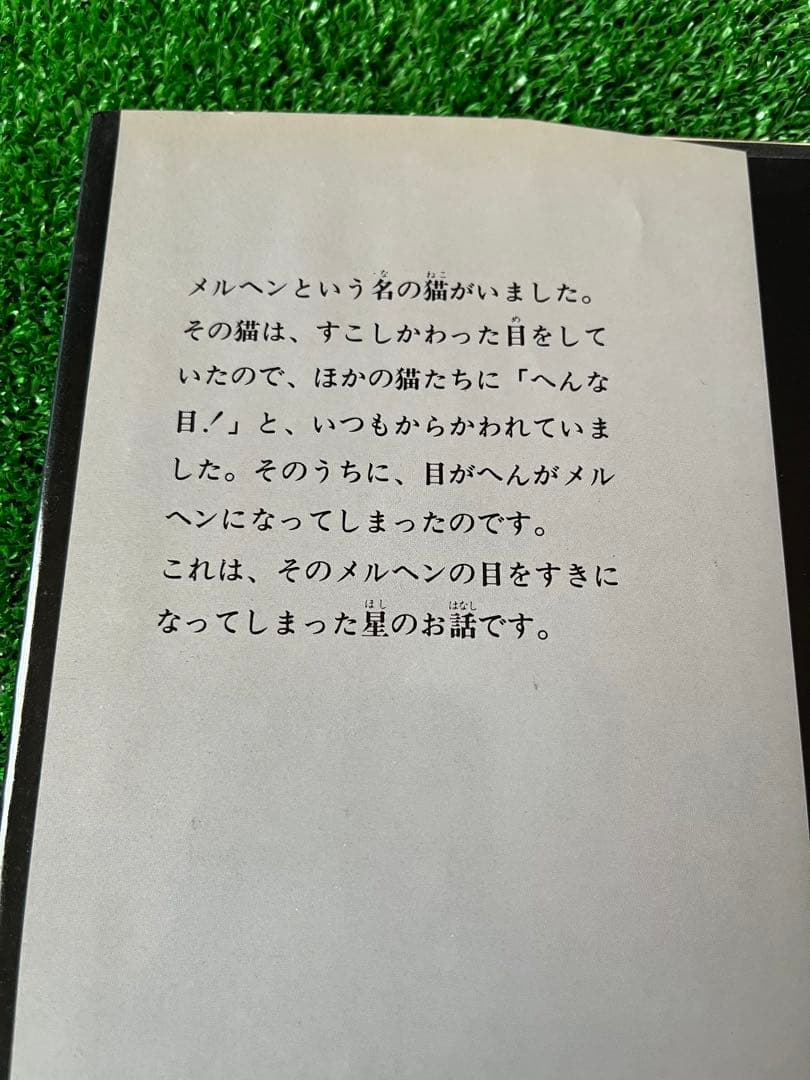 メルヘンという名の猫がいました。
その猫は、すこしかわった目をして
いたので、ほかの猫たちに「へんな
目！」と、いつもからかわれていま
した。そのうちに、目がへんがメル
ヘンになってしまったのです。
これは、そのメルヘンの目をすきに
なってしまった星のお話です。